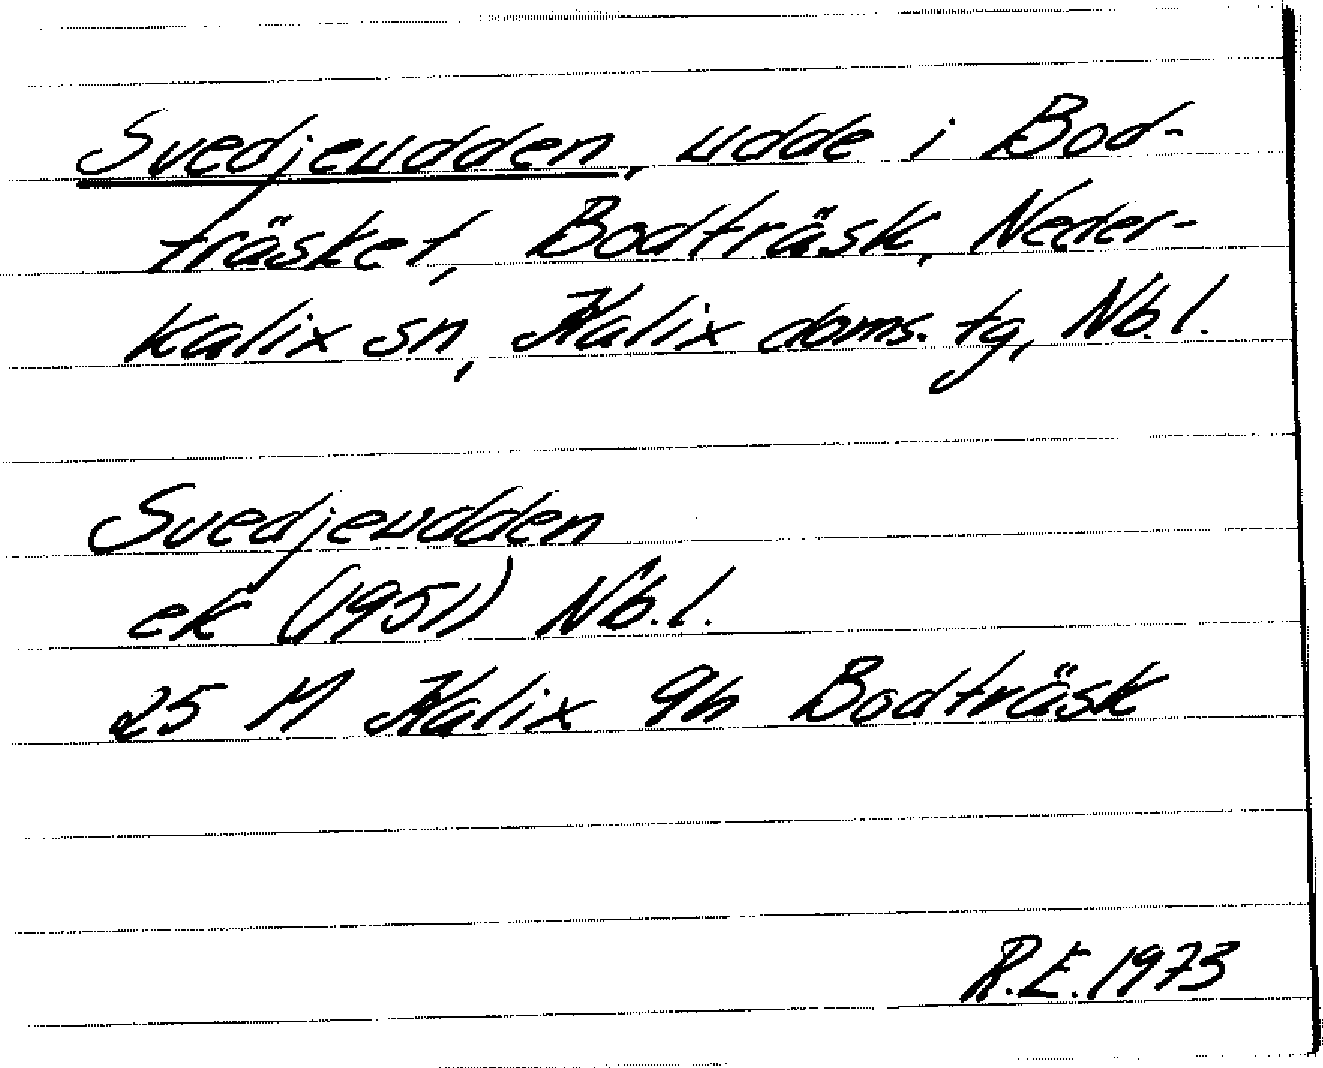 Svedjeudden, udde i Bod-
träsket, Bodträsk, Neder-
kalix sn, Kalix doms. tg, Nb. l.
Svedjeudden
ek (1951) Nb. l.
25 M Kalix 9h Bodträsk
R.E. 1973